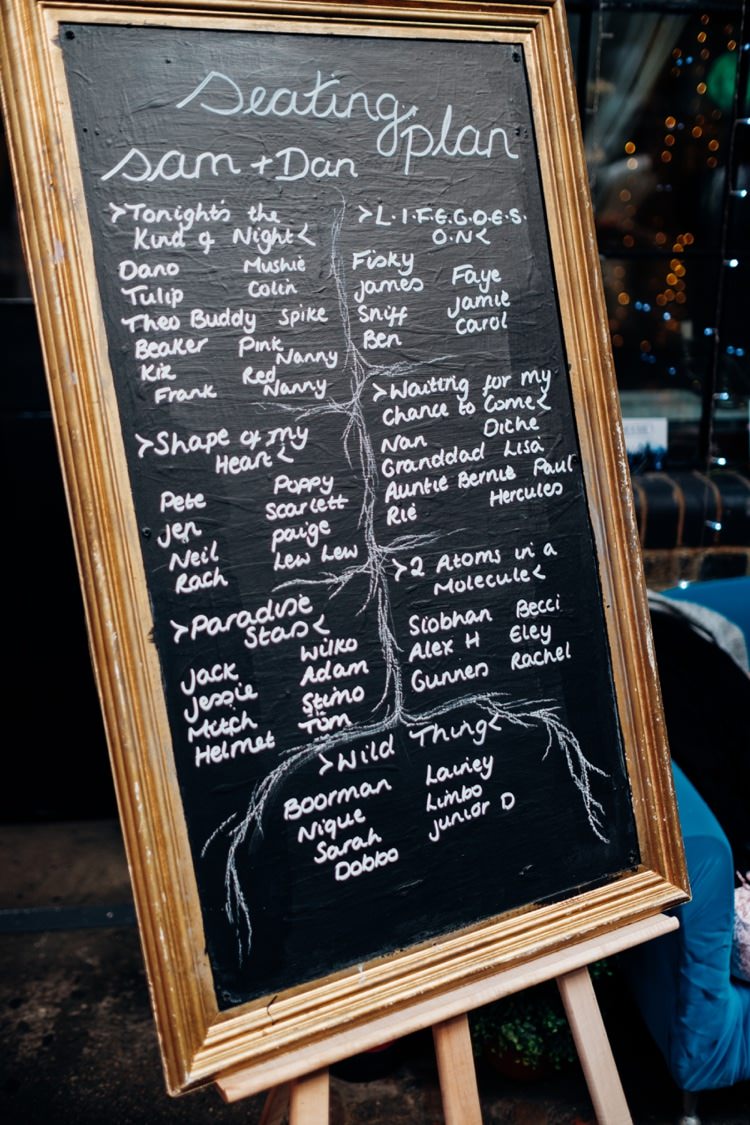 Seating plan
Sam + Dan
>Tonight's the
Kind of Night<
Dano Mushie
Tulip Colin
Theo Buddy Spike
Beaker Pink Nanny
Kiz Red Nanny
Frank
>Shape of my
Heart<
Pete Poppy
Jen Scarlett
Neil paige
Rach Lew Lew
>Paradise
Stas<
Jack Wilko
Jessie Adam
Mitch Stimo
Helmet Tom
>L.I.F.E.G.O.E.S.
O.N<
Fisky Faye
James Jamie
Sniff Carol
Ben
>Waiting for my
Chance to Come<
Nan Dithe
Granddad Lisa
Auntie Bernie Paul
Rie Hercules
>2 Atoms in a
Molecule<
Siobhan Becci
Alex H Eley
Gunnes Rachel
>Wild Thing<
Boorman Lainey
Nique Limbo
Sarah Junior D
Dobbo